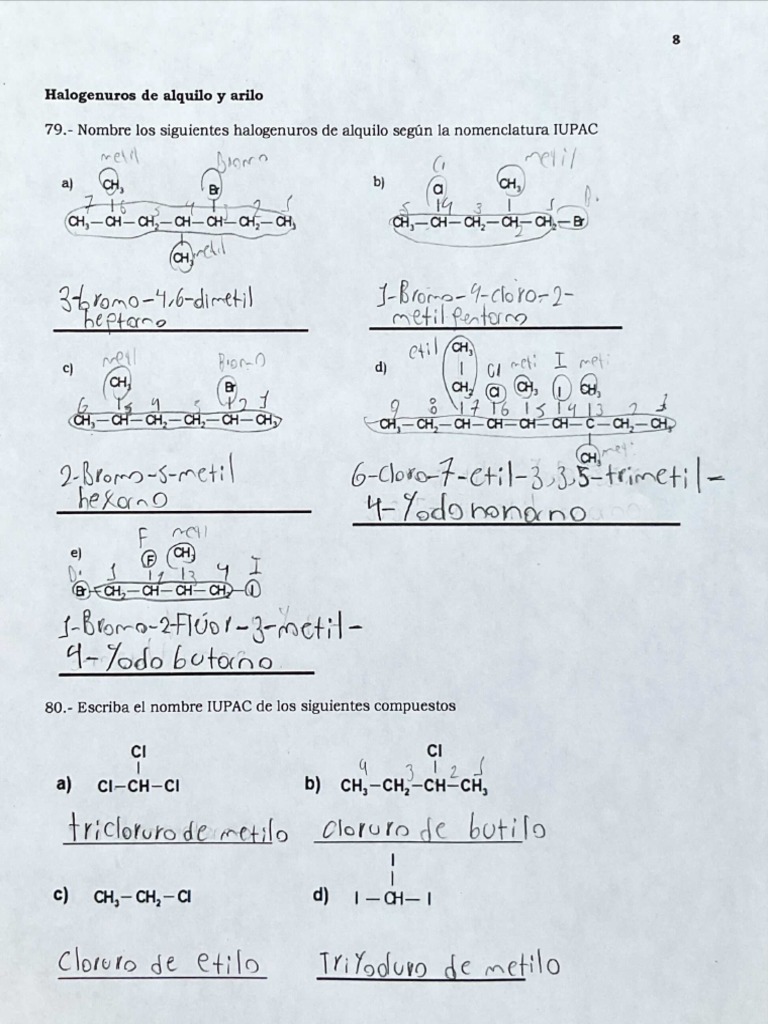 8
Halogenuros de alquilo y arilo
79.- Nombre los siguientes halogenuros de alquilo según la nomenclatura IUPAC
metil Bromo Cl metil
a) CH₃ Br b) Cl CH₃ B.
7 6 5 4 3 2 1 5 4 3 2 1
CH₃–CH–CH₂–CH–CH–CH₂–CH₃ CH₃–CH–CH₂–CH–CH₂–Br
CH₃ metil
3-bromo-4,6-dimetil 1-Bromo-4-cloro-2-
heptano metil pentano
c) metil Bromo d) etil CH₃
CH₃ Br CH₂ Cl Cl meti CH₃ I I meti CH₃
6 5 4 3 2 1 9 8 7 6 5 4 3 2 1
CH₃–CH–CH₂–CH₂–CH–CH₃ CH₃–CH₂–CH–CH–CH–CH–C–CH₂–CH₃
CH₃ meti
2-Bromo-5-metil 6-Cloro-7-etil-3,3,5-trimetil-
hexano 4-Yodo nonano
F metil
e) F CH₃ I
B. 1 2 3 4
Br–CH₂–CH–CH–CH₂–I
1-Bromo-2-Flúor-3-metil-
4-Yodo butano
80.- Escriba el nombre IUPAC de los siguientes compuestos
Cl Cl
4 3 2 1
a) Cl–CH–Cl b) CH₃–CH₂–CH–CH₃
tricloruro de metilo Cloruro de butilo
I
c) CH₃–CH₂–Cl d) I–CH–I
Cloruro de etilo TriYoduro de metilo